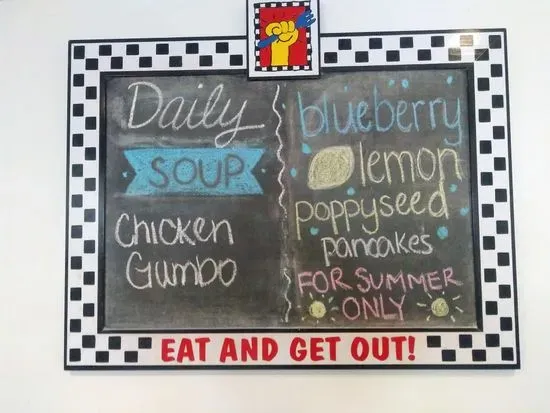 Daily
SOUP
Chicken
Gumbo
blueberry
lemon
poppyseed
pancakes
FOR SUMMER
ONLY
EAT AND GET OUT!